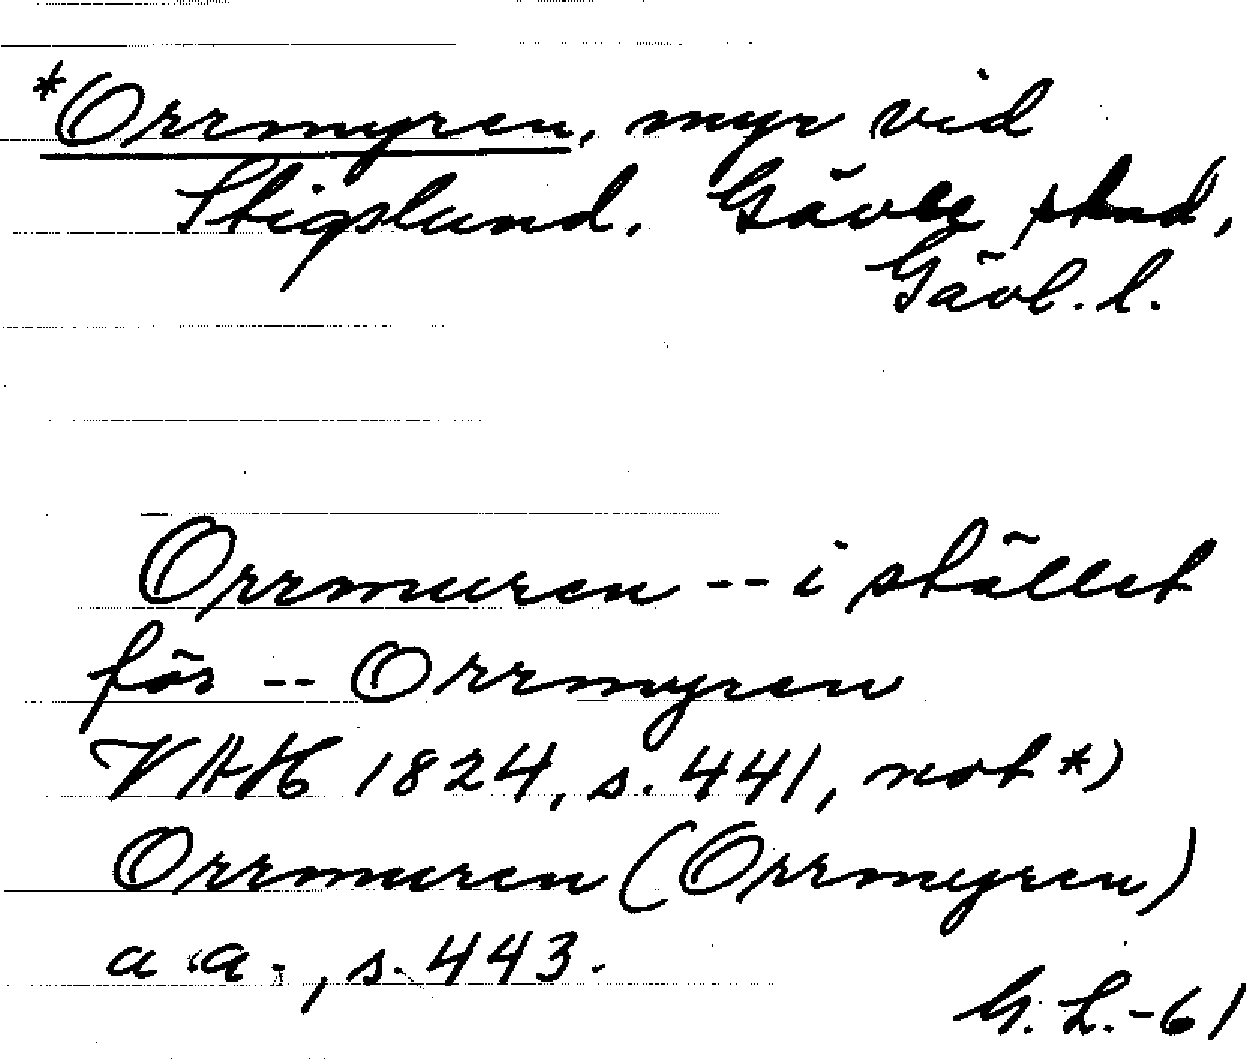 *Orrmyren, myr vid
Stigslund. Gävle stad,
Gävl. l.
Orrmuren -- i stället
för -- Orrmyren
VAH 1824, s. 441, not *)
Orrmuren (Orrmyren)
a.a., s. 443.
G. L. -61